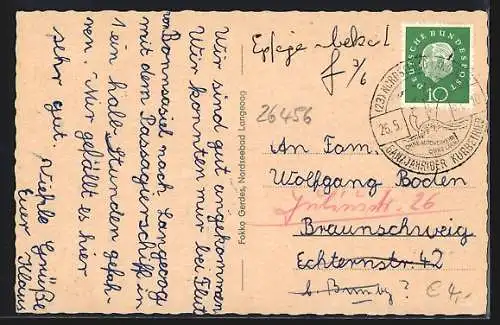 Wir sind gut angekommen
Wir konnten nur bei Flut
von Bonnasiel nach Langeoog
mit dem Passagierschiff in
1 ein halb Stunden gefah-
ren. Mir gefällt es hier
sehr gut. Viehle Grüße
Euer Klaus
Fokko Gerdes, Nordseebad Langeoog
26456
DEUTSCHE BUNDESPOST
10
(23)
26.5.
GANZJÄHRIGER KURBETRIEB
An Fam.
Wolfgang Boden
Juliusstr. 26
Braunschweig
Echternstr. 42
€ 4,-